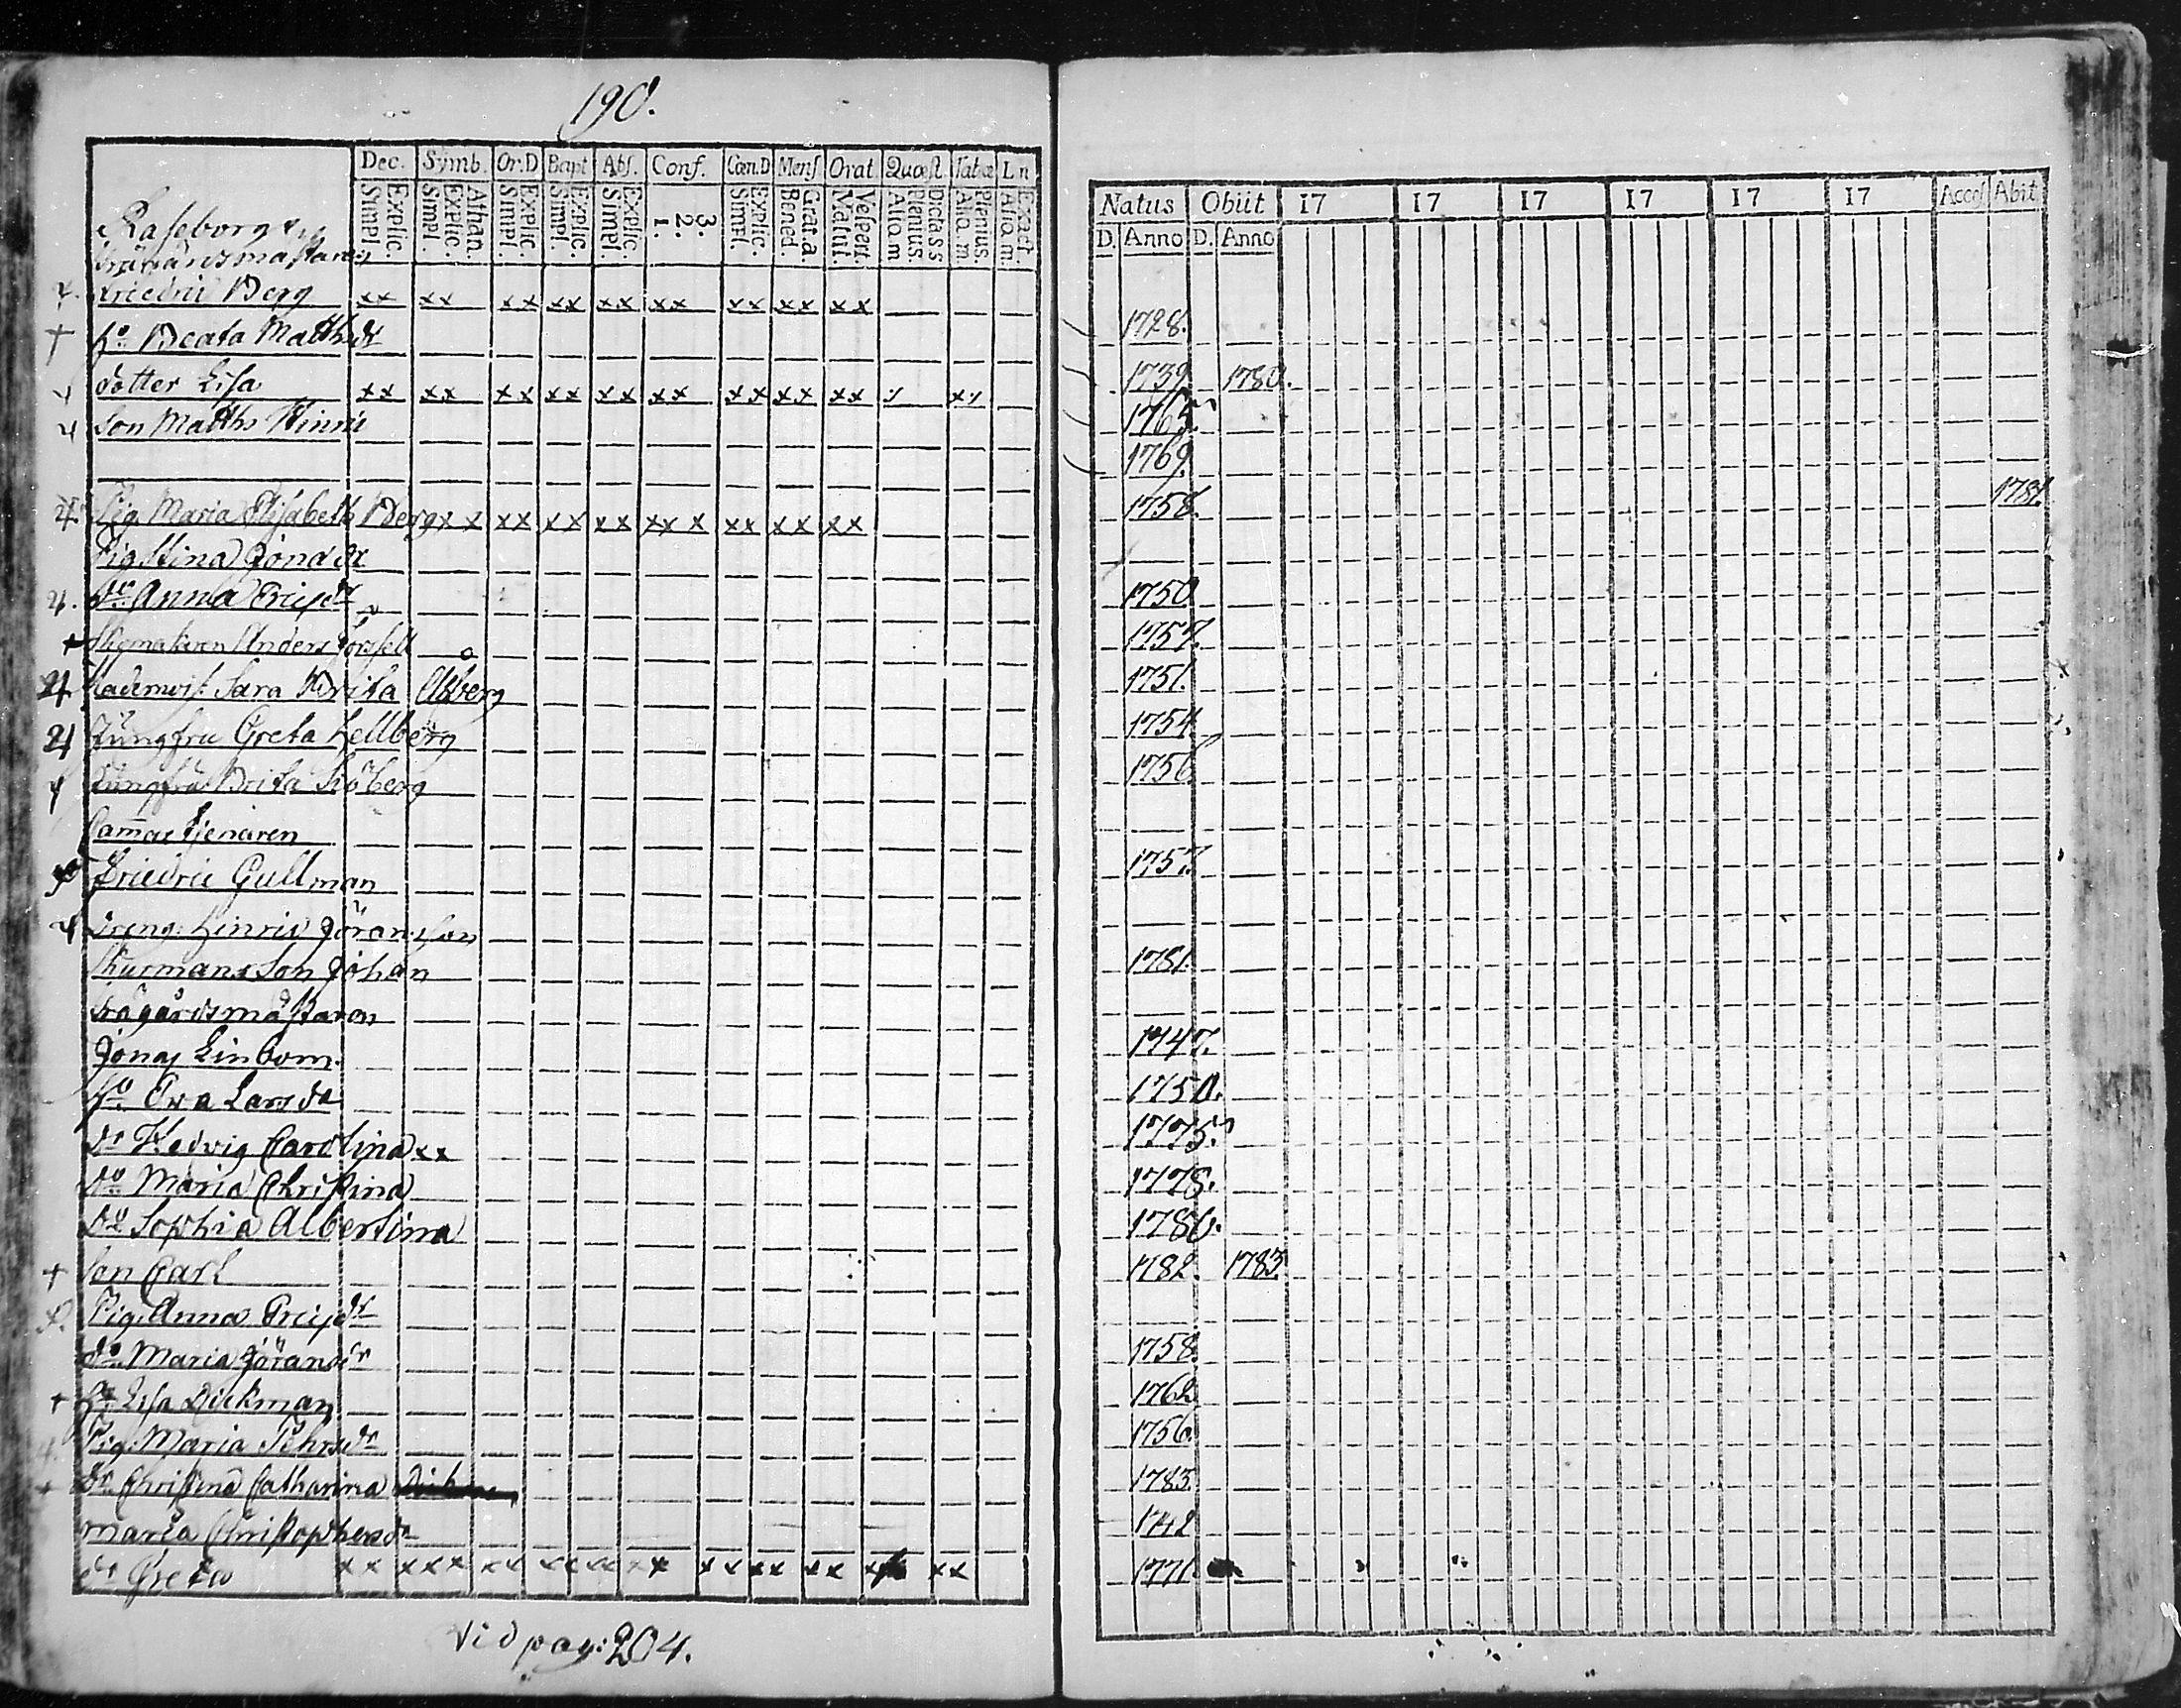 190.
Dec. Symb. Or.D Bapt Abs. Conf. Cœn.D Mens Orat Quæst Tabæ Ln
Explic. Simpl. Athan. Explic. Simpl. Explic. Simpl. Explic. Simpl. Explic. Simpl. 3. 2. 1. Explic. Simpl. Grat.a Bened. Vespert. Matut. Dicta ss Plenius Aliq.m Plenius Aliq.m Exact. Aliq.m
Raseborg
Trägårdsmästaren
Friedric Berg xx xx xx xx xx xx xx xx xx
h:o Beata Matthsdr
dotter Lisa xx xx xx xx xx xx xx xx xx x xx
Son Matths Hinric
Pig. Maria Elisabeth Berg xx xx xx xx xx x xx xx xx
Pig Stina Jönsdr
do Anna Ericsdr
Skomakaren Anders
Mademois. Sara Brita Åberg
Jungfru Greta Hellberg
Jungfru Brita Siöberg
Camar tjenaren
Friedric Gullman
Dreng. Hinric Göransson
Kurmans Son Johan
Trägårdsmästaren
Jonas Linbom.
h:o Eva Larsdr
dr Hedvig Carolina xx
do Maria Christina
do Sophia Albertina
Son Carl
Pig. Anna Ericsdr
do Maria Göransdr
Lisa Dickman
Pig. Maria Pehrsdr
dr Christina Catharina
Maria Christophersdr
dr Greta xx xxx xx xx xx xx xx xx xx xx
Vid pag: 204.
Natus Obiit 17 17 17 17 17 17 Acces Abit
D. Anno D. Anno
1728.
1739 1780.
1765
1769.
1758. 1781.
1750
1757.
1751.
1754.
1756
1757.
1781.
1747.
1750.
1775.
1778.
1780.
1782. 1783
1758.
1762
1756.
1783.
1742
1771.